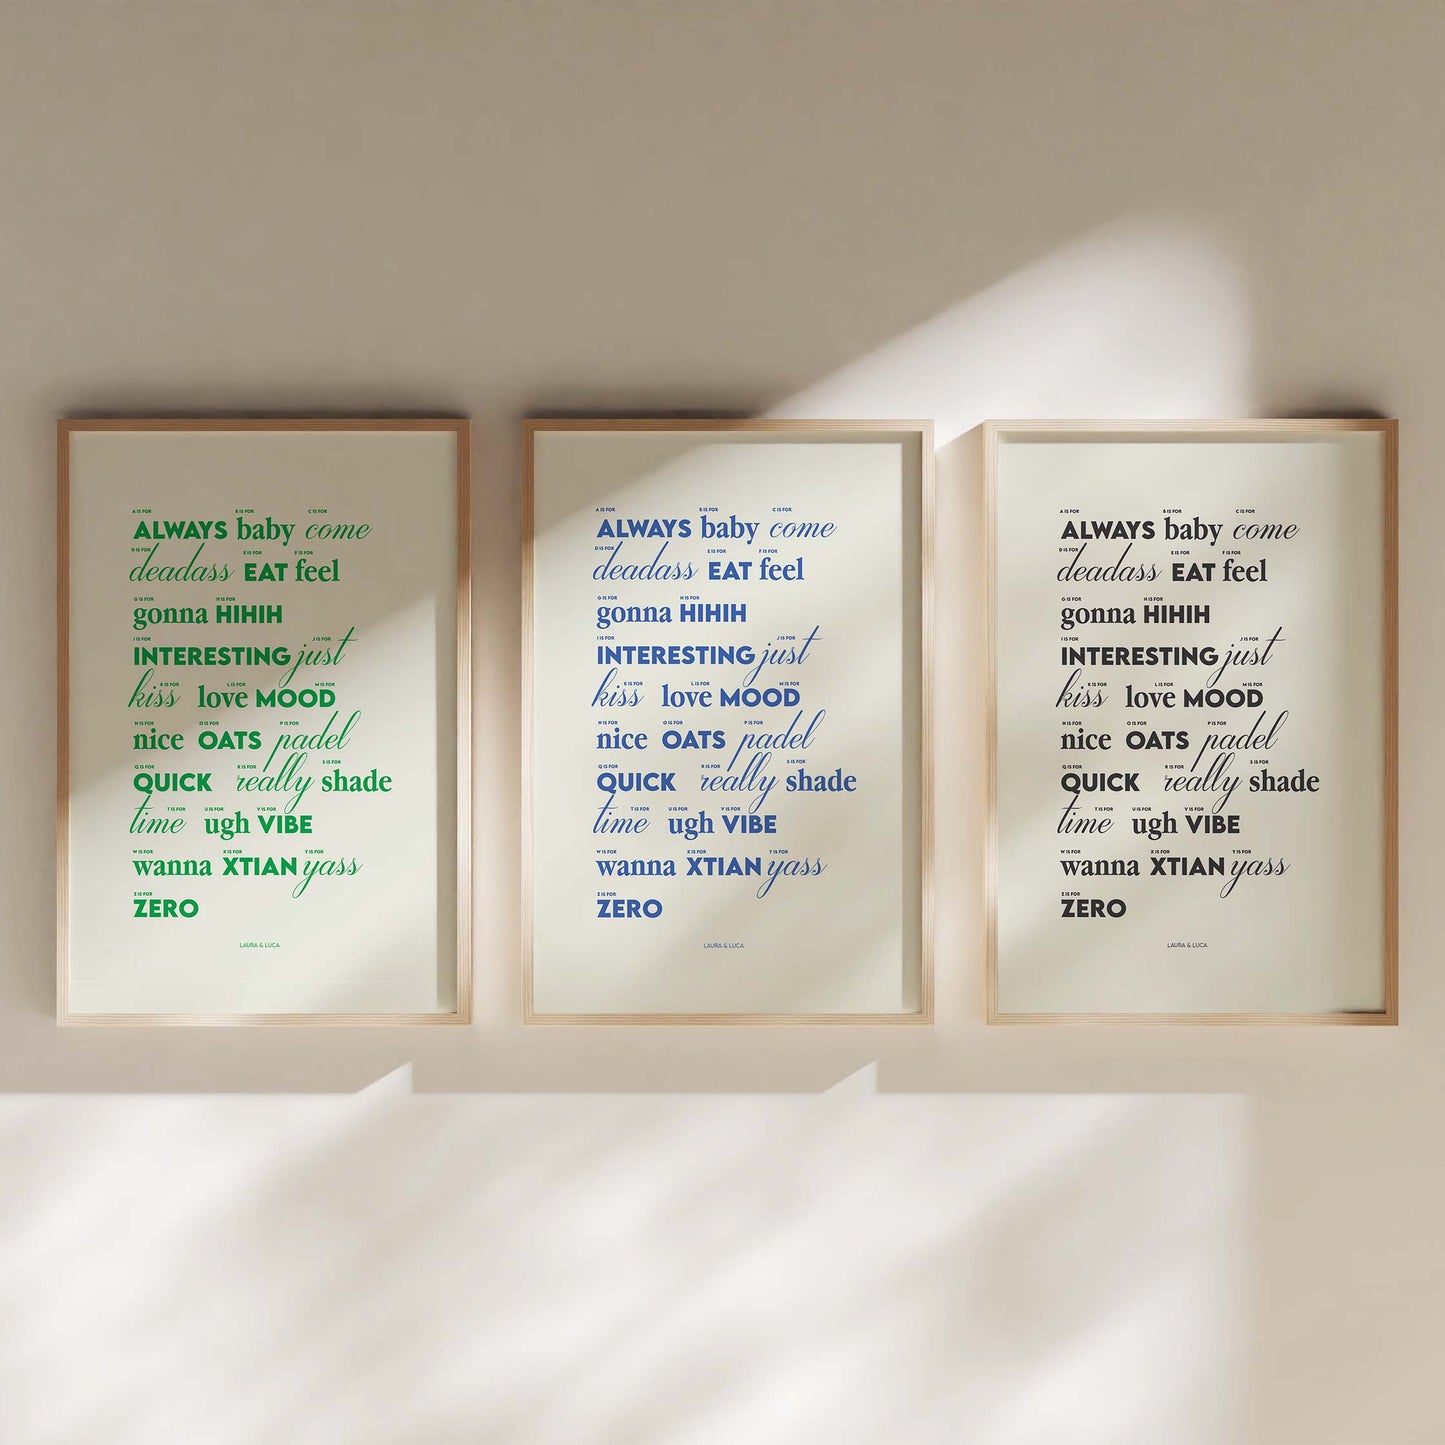 A IS FOR B IS FOR C IS FOR
ALWAYS baby come
D IS FOR E IS FOR F IS FOR
deadass EAT feel
G IS FOR H IS FOR
gonna HIHIH
I IS FOR J IS FOR
INTERESTING just
K IS FOR L IS FOR M IS FOR
kiss love MOOD
N IS FOR O IS FOR P IS FOR
nice OATS padel
Q IS FOR R IS FOR S IS FOR
QUICK really shade
T IS FOR U IS FOR V IS FOR
time ugh VIBE
W IS FOR X IS FOR Y IS FOR
wanna XTIAN yass
Z IS FOR
ZERO
LAURA & LUCA
A IS FOR B IS FOR C IS FOR
ALWAYS baby come
D IS FOR E IS FOR F IS FOR
deadass EAT feel
G IS FOR H IS FOR
gonna HIHIH
I IS FOR J IS FOR
INTERESTING just
K IS FOR L IS FOR M IS FOR
kiss love MOOD
N IS FOR O IS FOR P IS FOR
nice OATS padel
Q IS FOR R IS FOR S IS FOR
QUICK really shade
T IS FOR U IS FOR V IS FOR
time ugh VIBE
W IS FOR X IS FOR Y IS FOR
wanna XTIAN yass
Z IS FOR
ZERO
LAURA & LUCA
A IS FOR B IS FOR C IS FOR
ALWAYS baby come
D IS FOR E IS FOR F IS FOR
deadass EAT feel
G IS FOR H IS FOR
gonna HIHIH
I IS FOR J IS FOR
INTERESTING just
K IS FOR L IS FOR M IS FOR
kiss love MOOD
N IS FOR O IS FOR P IS FOR
nice OATS padel
Q IS FOR R IS FOR S IS FOR
QUICK really shade
T IS FOR U IS FOR V IS FOR
time ugh VIBE
W IS FOR X IS FOR Y IS FOR
wanna XTIAN yass
Z IS FOR
ZERO
LAURA & LUCA